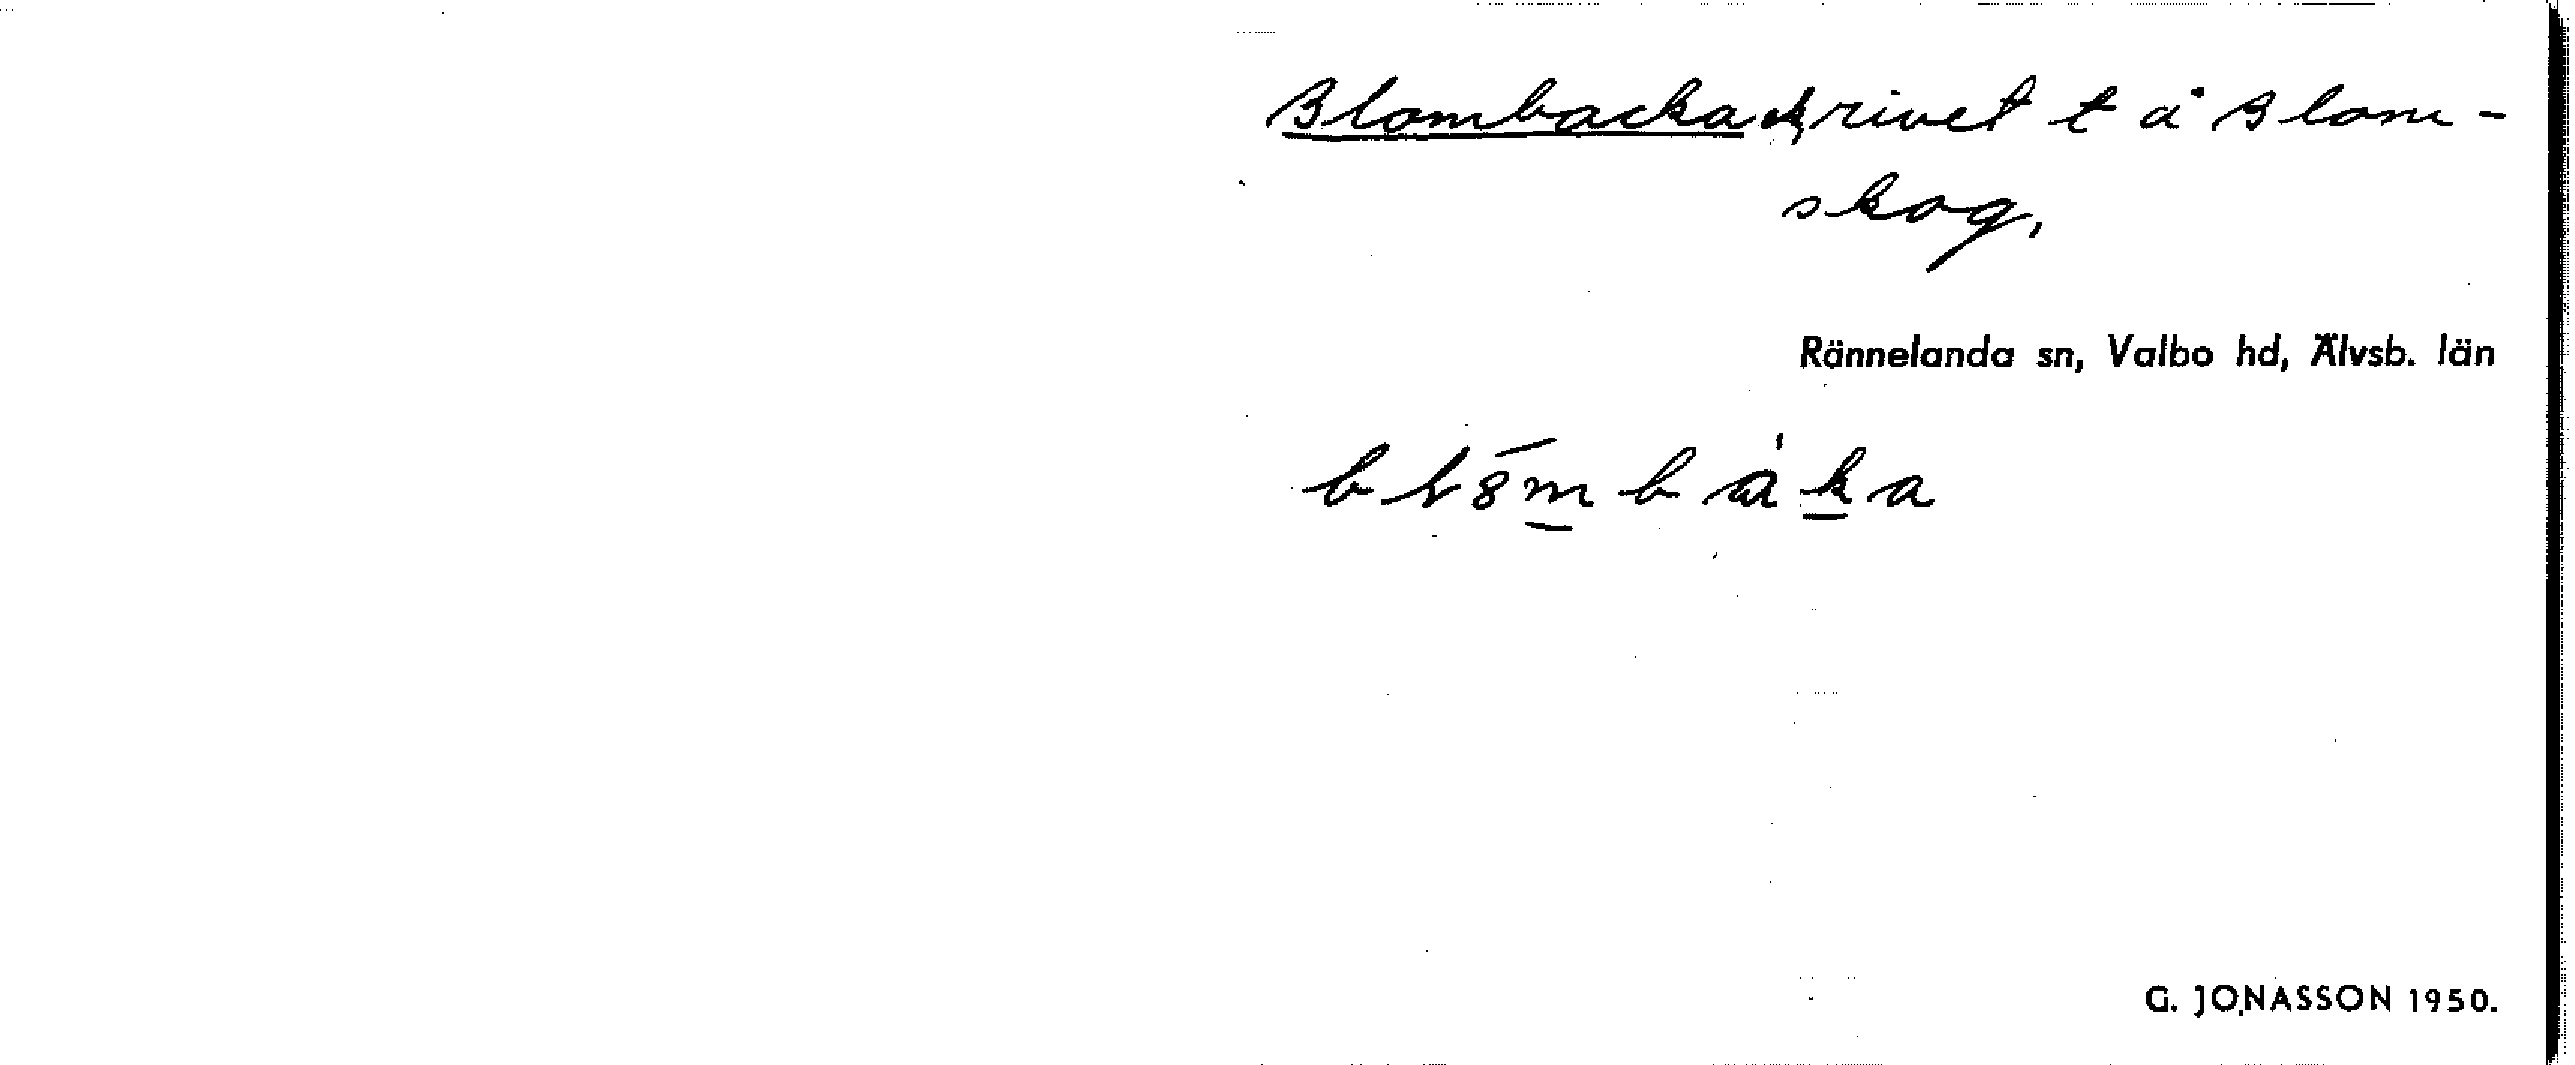 Blombacka skrivet t å Blom-
skog,
Rännelanda sn, Valbo hd, Älvsb. län
G. JONASSON 1950.